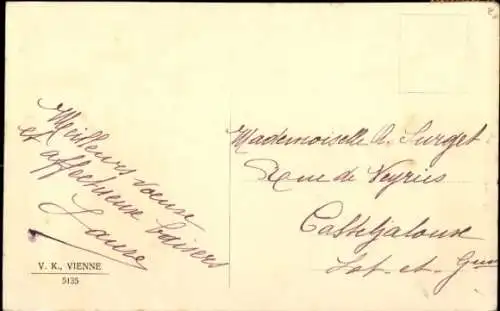 Meilleurs vœux
et affectueux baisers
Laure
V. K., VIENNE
5135
Mademoiselle A. Surget
Rue de Veyries
Casteljaloux
Lot-et-Gne